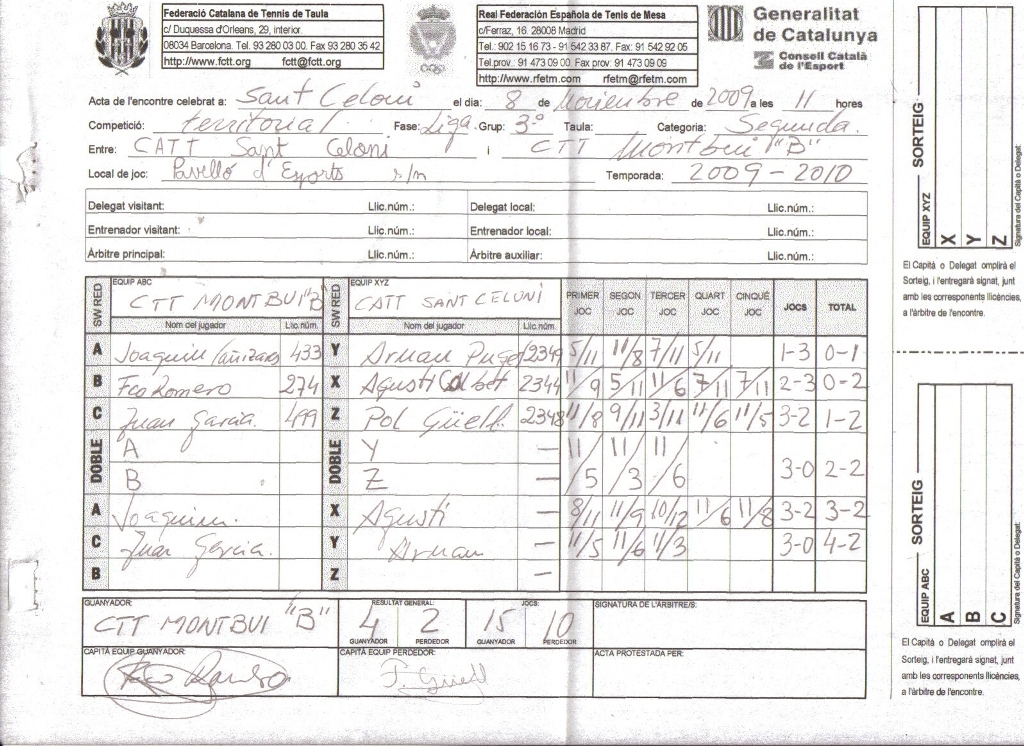 Federació Catalana de Tennis de Taula
c/ Duquessa d'Orleans, 29, interior.
08034 Barcelona. Tel. 93 280 03 00. Fax 93 280 35 42
http://www.fctt.org fctt@fctt.org
Real Federación Española de Tenis de Mesa
c/Ferraz, 16. 28008 Madrid
Tel.: 902 15 16 73 - 91 542 33 87. Fax: 91 542 92 05
Tel.prov.: 91 473 09 00. Fax prov: 91 473 09 09
http://www.rfetm.com rfetm@rfetm.com
Generalitat
de Catalunya
Consell Català
de l'Esport
Acta de l'encontre celebrat a: Sant Celoni el dia: 8 de Noviembre de 2009 a les 11 hores
Competició: territorial Fase: Liga. Grup: 3º Taula: Categoria: Segunda.
Entre: CATT Sant Celoni i CTT Montbui "B"
Local de joc: Pavelló d'Esports s/n Temporada: 2009-2010
Delegat visitant: Llic.núm.: Delegat local: Llic.núm.:
Entrenador visitant: Llic.núm.: Entrenador local: Llic.núm.:
Àrbitre principal: Llic.núm.: Àrbitre auxiliar: Llic.núm.:
SW RED EQUIP ABC CTT MONTBUI "B" SW RED EQUIP XYZ CATT SANT CELONI PRIMER JOC SEGON JOC TERCER JOC QUART JOC CINQUÈ JOC JOCS TOTAL
Nom del jugador Llic.núm. Nom del jugador Llic.núm.
A Joaquim 433 Y Arnau 2349 5/11 11/8 7/11 5/11 1-3 0-1
B Fco Romero 274 X Agustí 2344 11/9 5/11 11/6 7/11 7/11 2-3 0-2
C Juan Garcia. 499 Z Pol Güell 2348 11/8 9/11 3/11 11/6 11/5 3-2 1-2
DOBLE A Y — 11/5 11/3 11/6 3-0 2-2
B Z —
A Joaquim. X Agustí — 8/11 11/9 10/12 11/6 11/8 3-2 3-2
C Juan Garcia. Y Arnau — 11/5 11/6 11/3 3-0 4-2
B Z —
GUANYADOR: CTT MONTBUI "B" RESULTAT GENERAL: 4 GUANYADOR 2 PERDEDOR JOCS: 15 GUANYADOR 10 PERDEDOR SIGNATURA DE L'ÀRBITRE/S:
CAPITÀ EQUIP GUANYADOR: CAPITÀ EQUIP PERDEDOR: P. Güell ACTA PROTESTADA PER:
SORTEIG
EQUIP XYZ
X
Y
Z
Signatura del Capità o Delegat:
El Capità o Delegat omplirà el
Sorteig, i l'entregarà signat, junt
amb les corresponents llicències,
a l'àrbitre de l'encontre.
SORTEIG
EQUIP ABC
A
B
C
Signatura del Capità o Delegat:
El Capità o Delegat omplirà el
Sorteig, i l'entregarà signat, junt
amb les corresponents llicències,
a l'àrbitre de l'encontre.